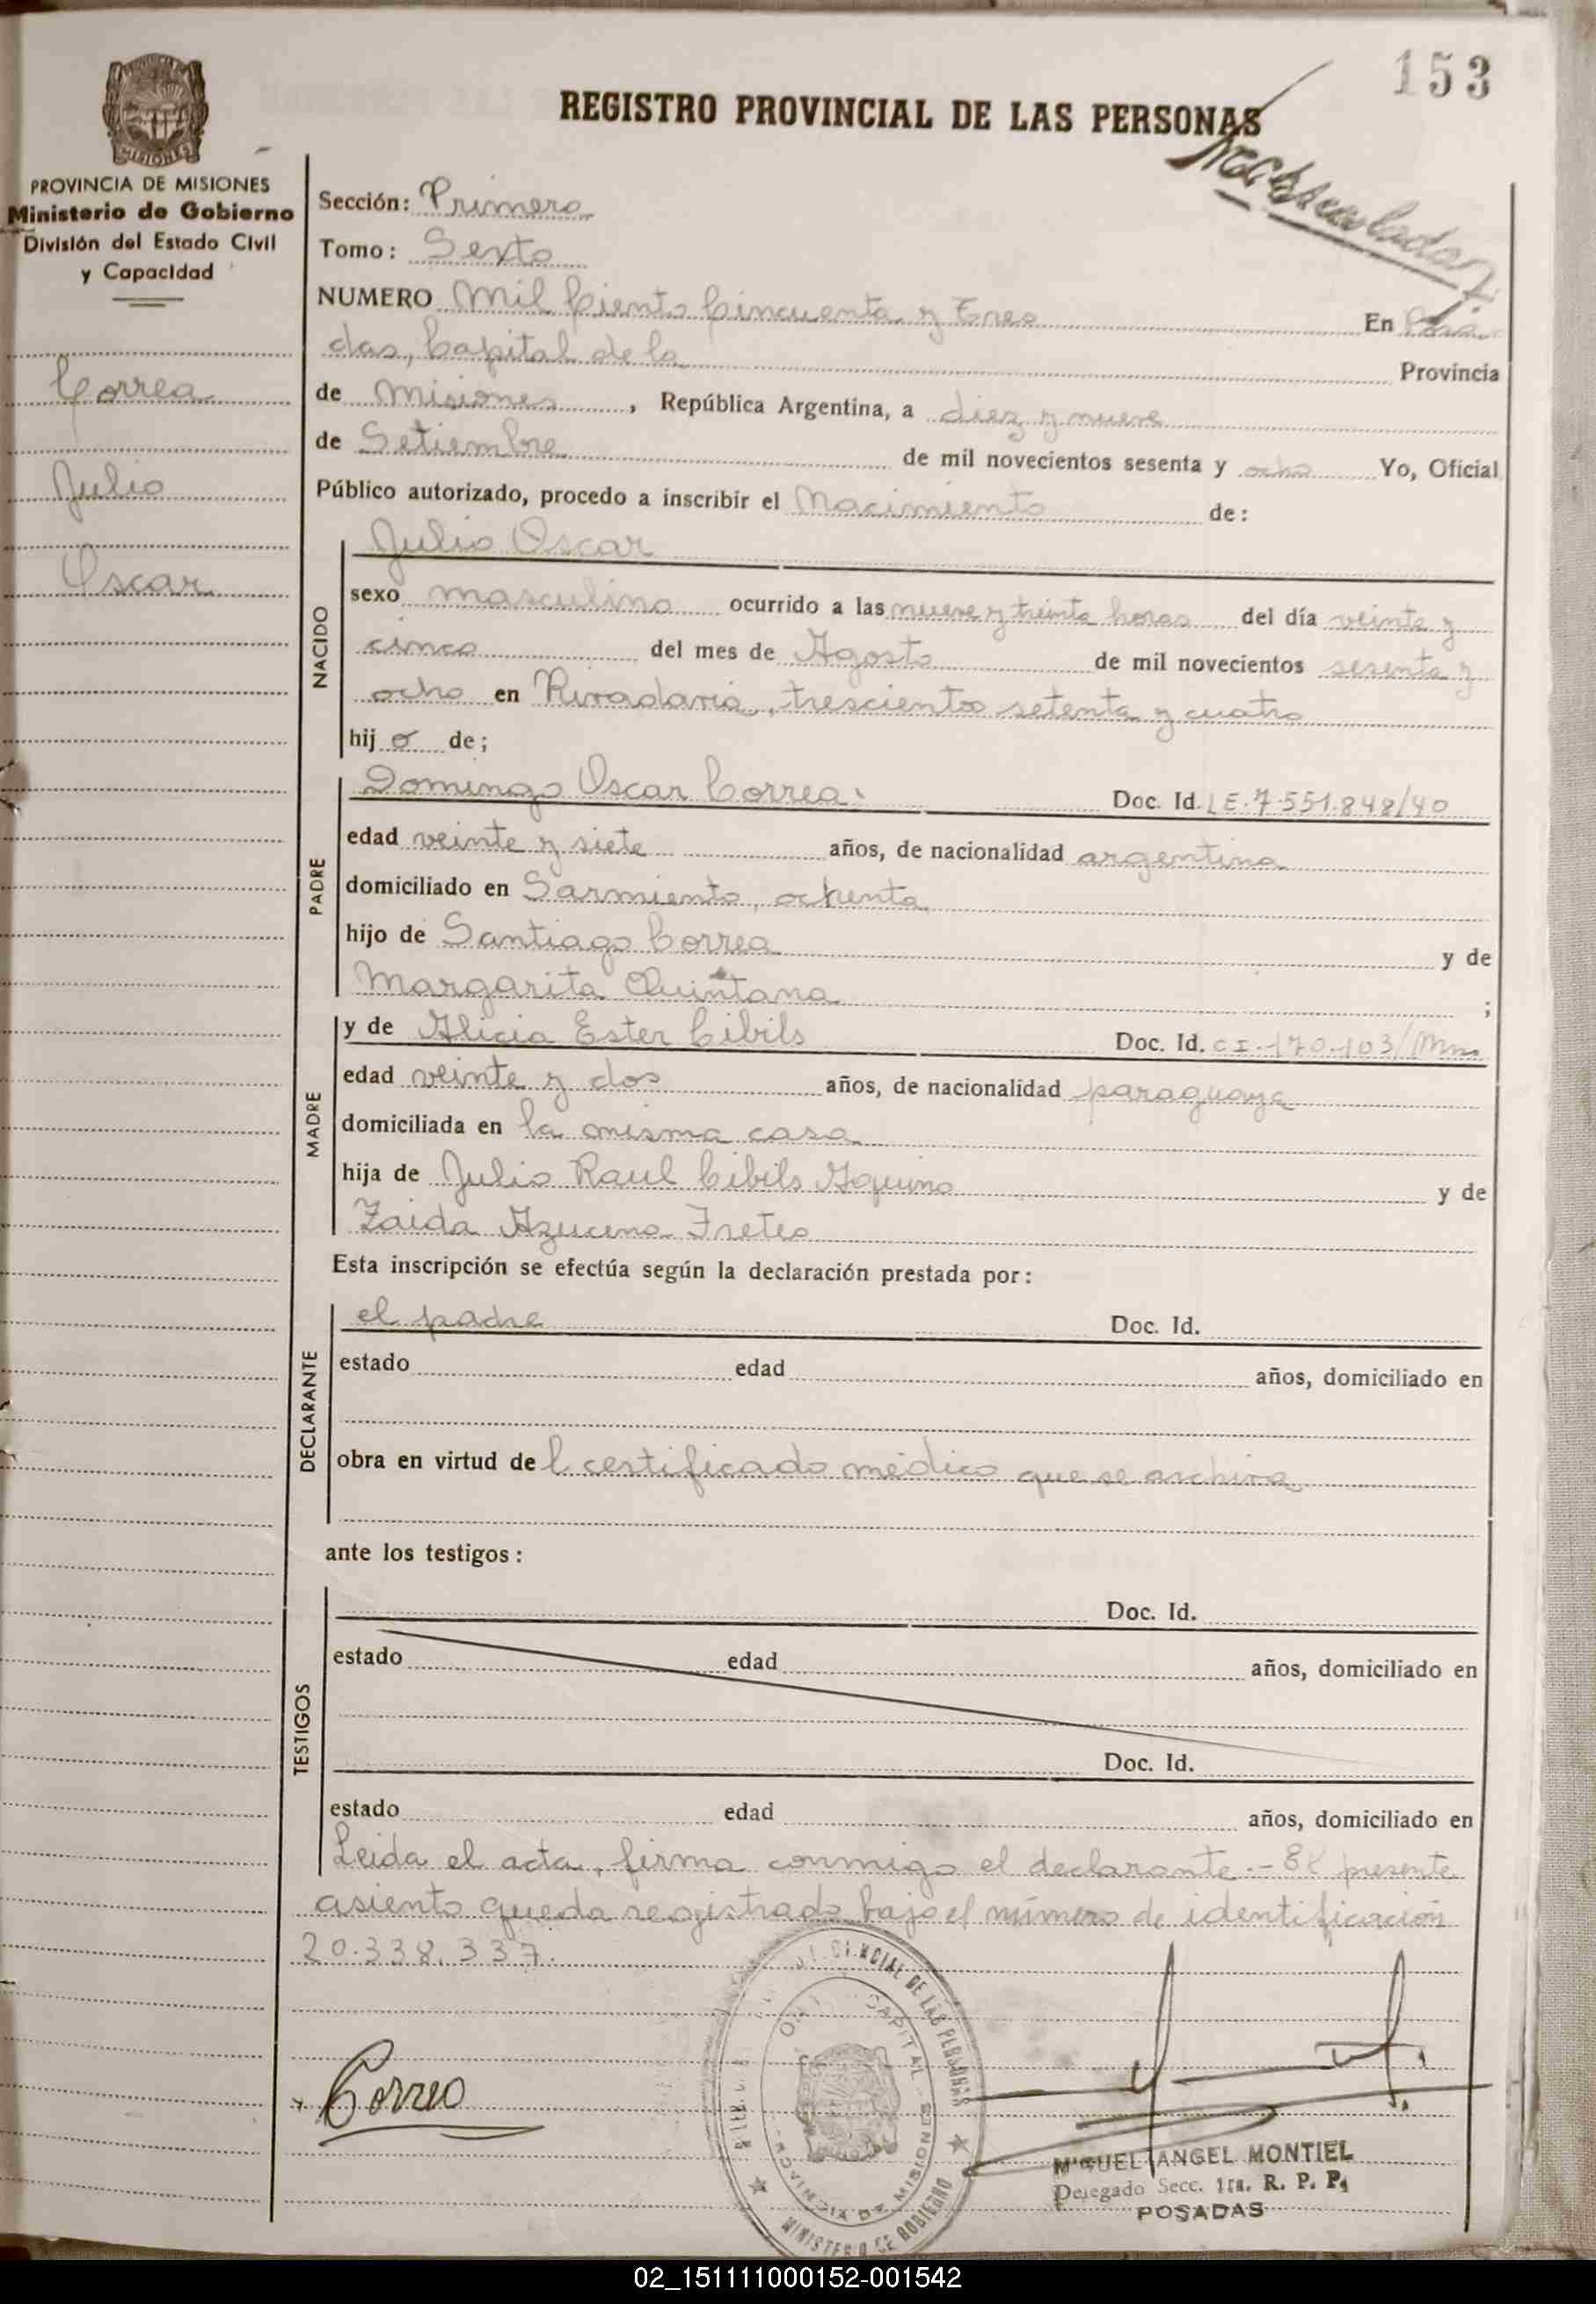 153
REGISTRO PROVINCIAL DE LAS PERSONAS
MISIONES
PROVINCIA DE MISIONES
Ministerio de Gobierno
División del Estado Civil
y Capacidad
Correa
Julio
Oscar
Sección: Primera
Tomo: Sexto
NUMERO Mil Ciento Cincuenta y Tres En Posa
das, Capital de la Provincia
de Misiones, República Argentina, a diez y nueve
de Setiembre de mil novecientos sesenta y ocho Yo, Oficial
Público autorizado, procedo a inscribir el Nacimiento de:
NACIDO
Julio Oscar
sexo masculino ocurrido a las nueve y treinta horas del día veinte y
cinco del mes de Agosto de mil novecientos sesenta y
ocho en Rivadavia, trescientos setenta y cuatro
hijo de;
PADRE
Domingo Oscar Correa. Doc. Id. LE.7.551.848/40
edad veinte y siete años, de nacionalidad argentina
domiciliado en Sarmiento, ochenta
hijo de Santiago Correa y de
Margarita Quintana ;
MADRE
y de Alicia Ester Cibils Doc. Id. CI.170.103/Mns
edad veinte y dos años, de nacionalidad paraguaya
domiciliada en la misma casa
hija de Julio Raul Cibils Aquino y de
Zaida Azucena Fretes
Esta inscripción se efectúa según la declaración prestada por:
DECLARANTE
el padre Doc. Id.
estado edad años, domiciliado en
obra en virtud del certificado médico que se archiva
ante los testigos:
TESTIGOS
Doc. Id.
estado edad años, domiciliado en
Doc. Id.
estado edad años, domiciliado en
Leida el acta, firma conmigo el declarante.- El presente
asiento queda registrado bajo el número de identificación
20.338.337.
Correa
CAPITAL
PROVINCIA DE MISIONES
MINISTERIO DE GOBIERNO
MIGUEL ANGEL MONTIEL
Delegado Secc. 1ra. R. P. P.
POSADAS
02_151111000152-001542